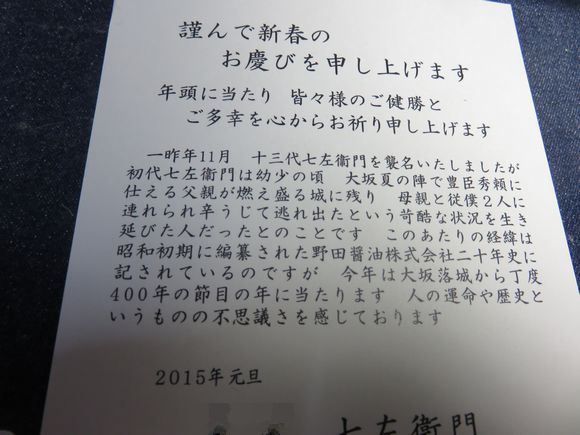 謹んで新春の
お慶びを申し上げます
年頭に当たり 皆々様のご健勝と
ご多幸を心からお祈り申し上げます
一昨年11月 十三代七左衛門を襲名いたしましたが
初代七左衛門は幼少の頃 大坂夏の陣で豊臣秀頼に
仕える父親が燃え盛る城に残り 母親と従僕2人に
連れられ辛うじて逃れ出たという苛酷な状況を生き
延びた人だったとのことです このあたりの経緯は
昭和初期に編纂された野田醤油株式会社二十年史に
記されているのですが 今年は大坂落城から丁度
400年の節目の年に当たります 人の運命や歴史と
いうものの不思議さを感じております
2015年元旦
七左衛門